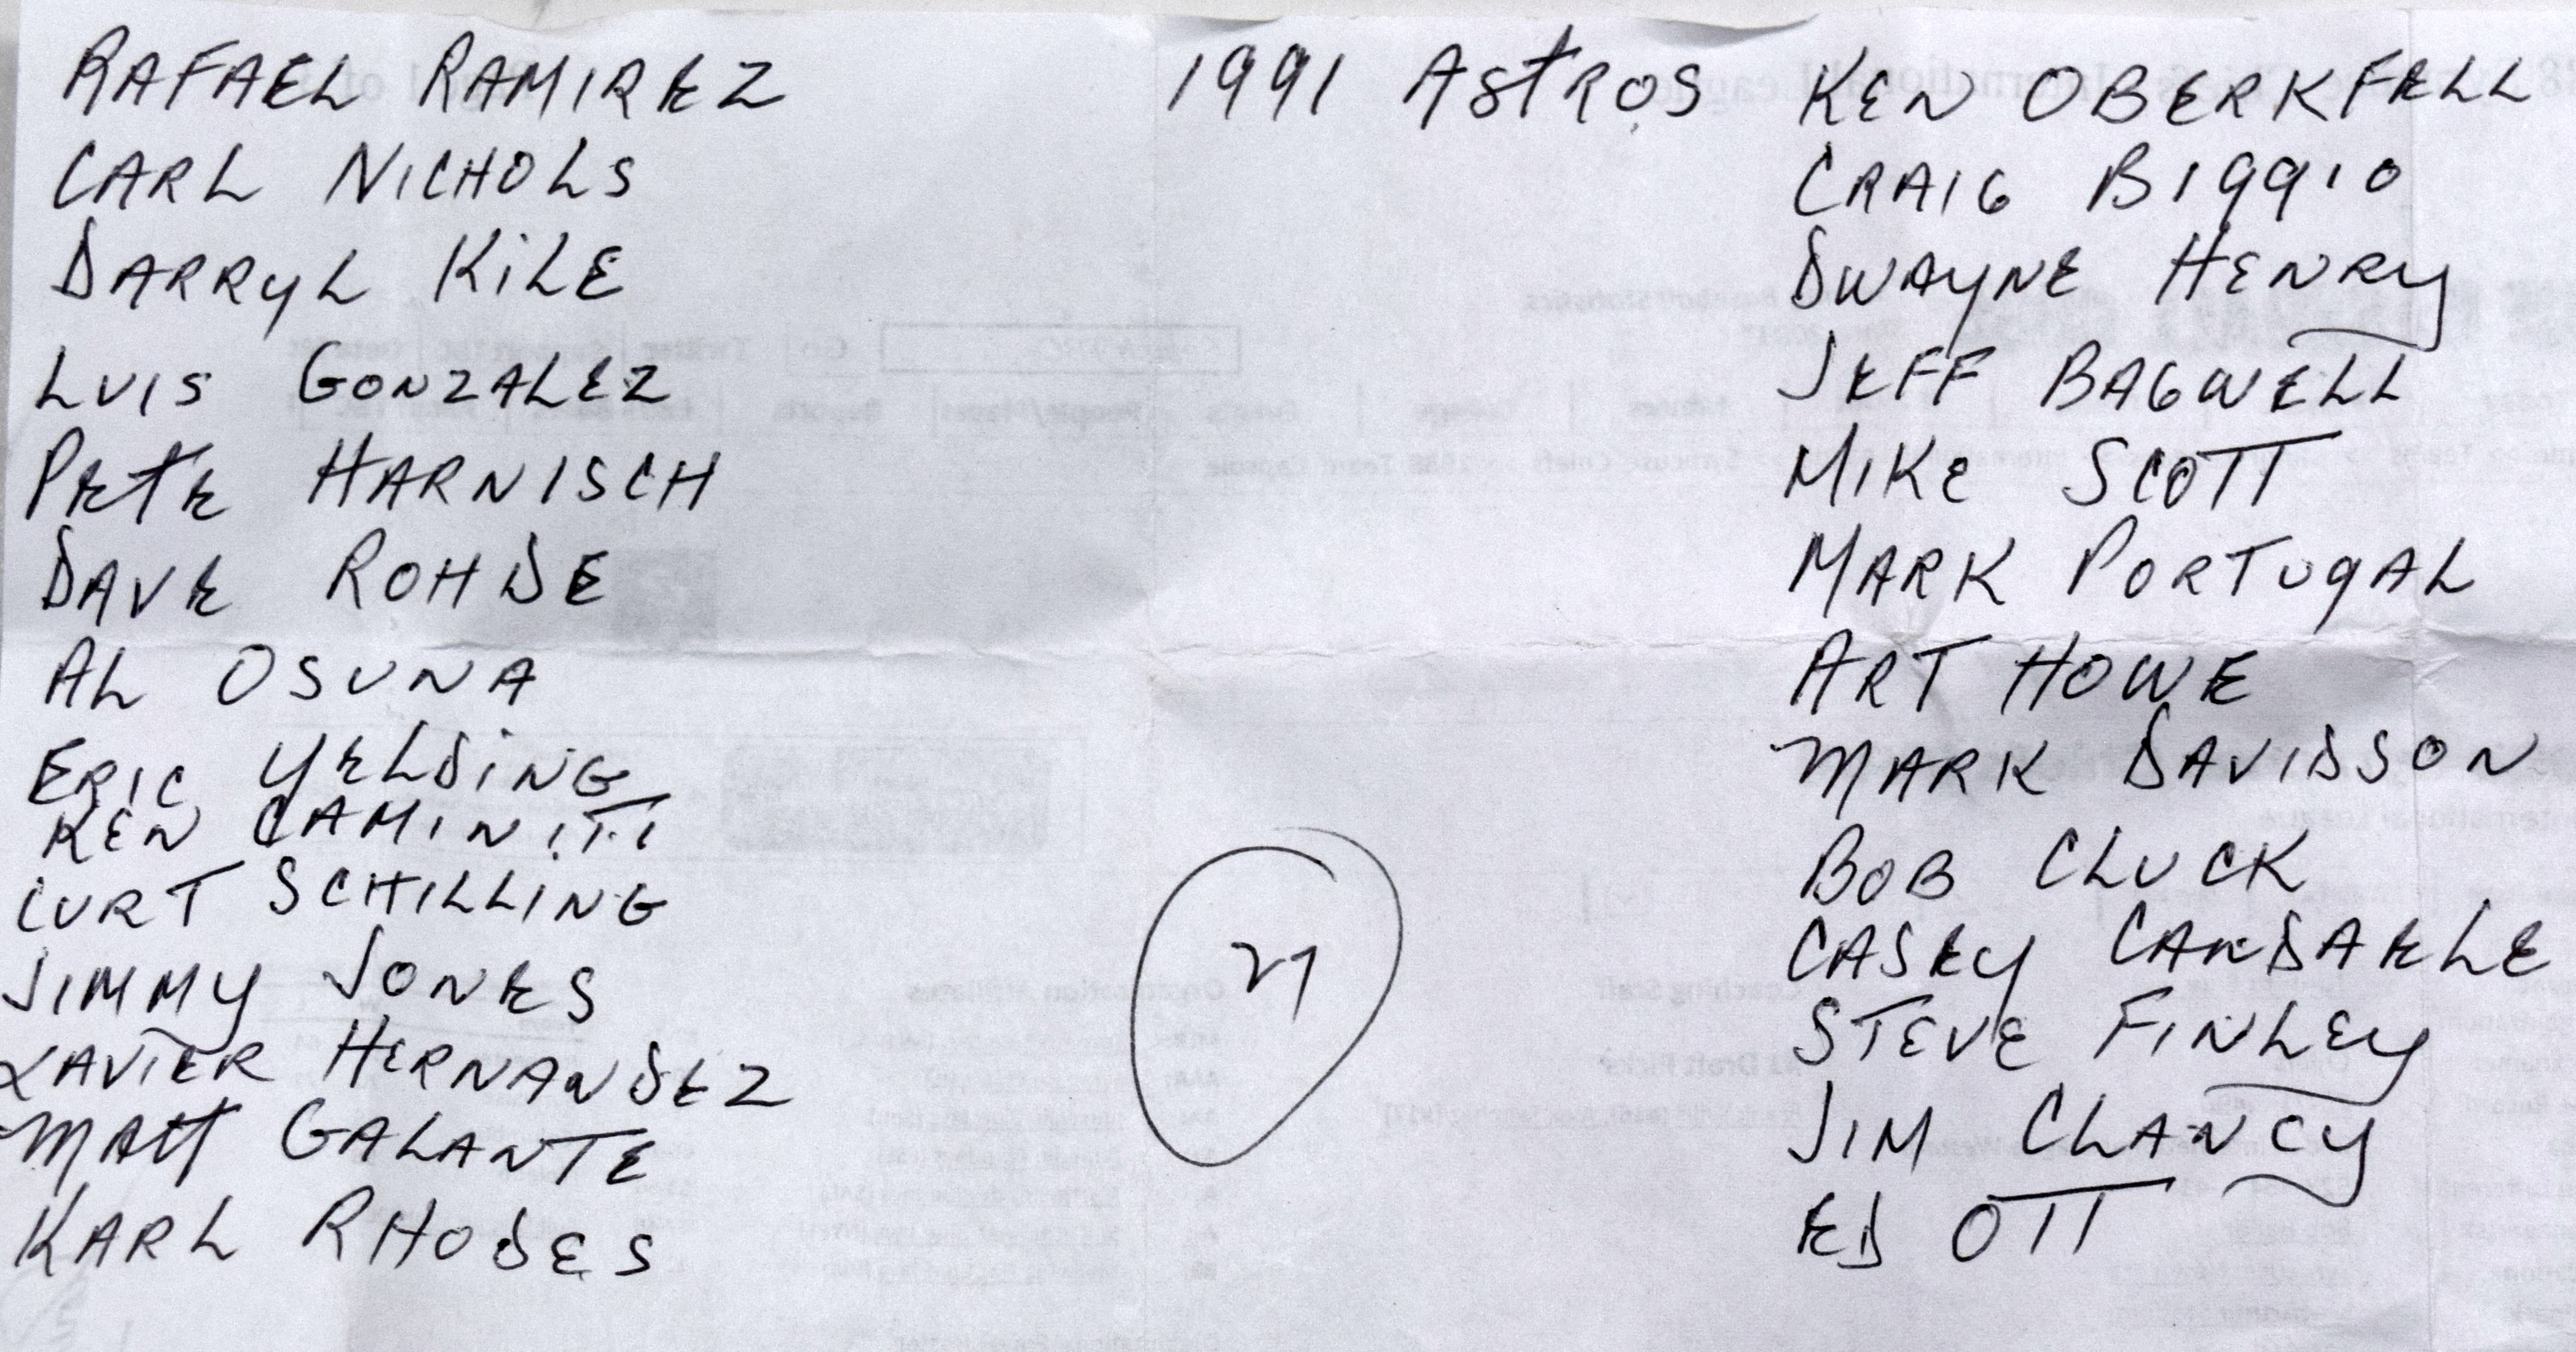 1991 Astros
RAFAEL RAMIREZ
CARL NICHOLS
DARRYL KiLE
LUIS GONZALEZ
PETE HARNISCH
DAVE ROHDE
AL OSUNA
ERIC YELDING
KEN CAMINITI
CURT SCHILLING
JIMMY JONES
XAVIER HERNANDEZ
MATT GALANTE
KARL RHODES
KEN OBERKFELL
CRAIG BIGGIO
DWAYNE HENRY
JEFF BAGWELL
MIKE SCOTT
MARK PORTUGAL
ART HOWE
MARK DAVIDSON
BOB CLUCK
CASEY CANDAELE
STEVE FINLEY
JIM CLANCY
ED OTT